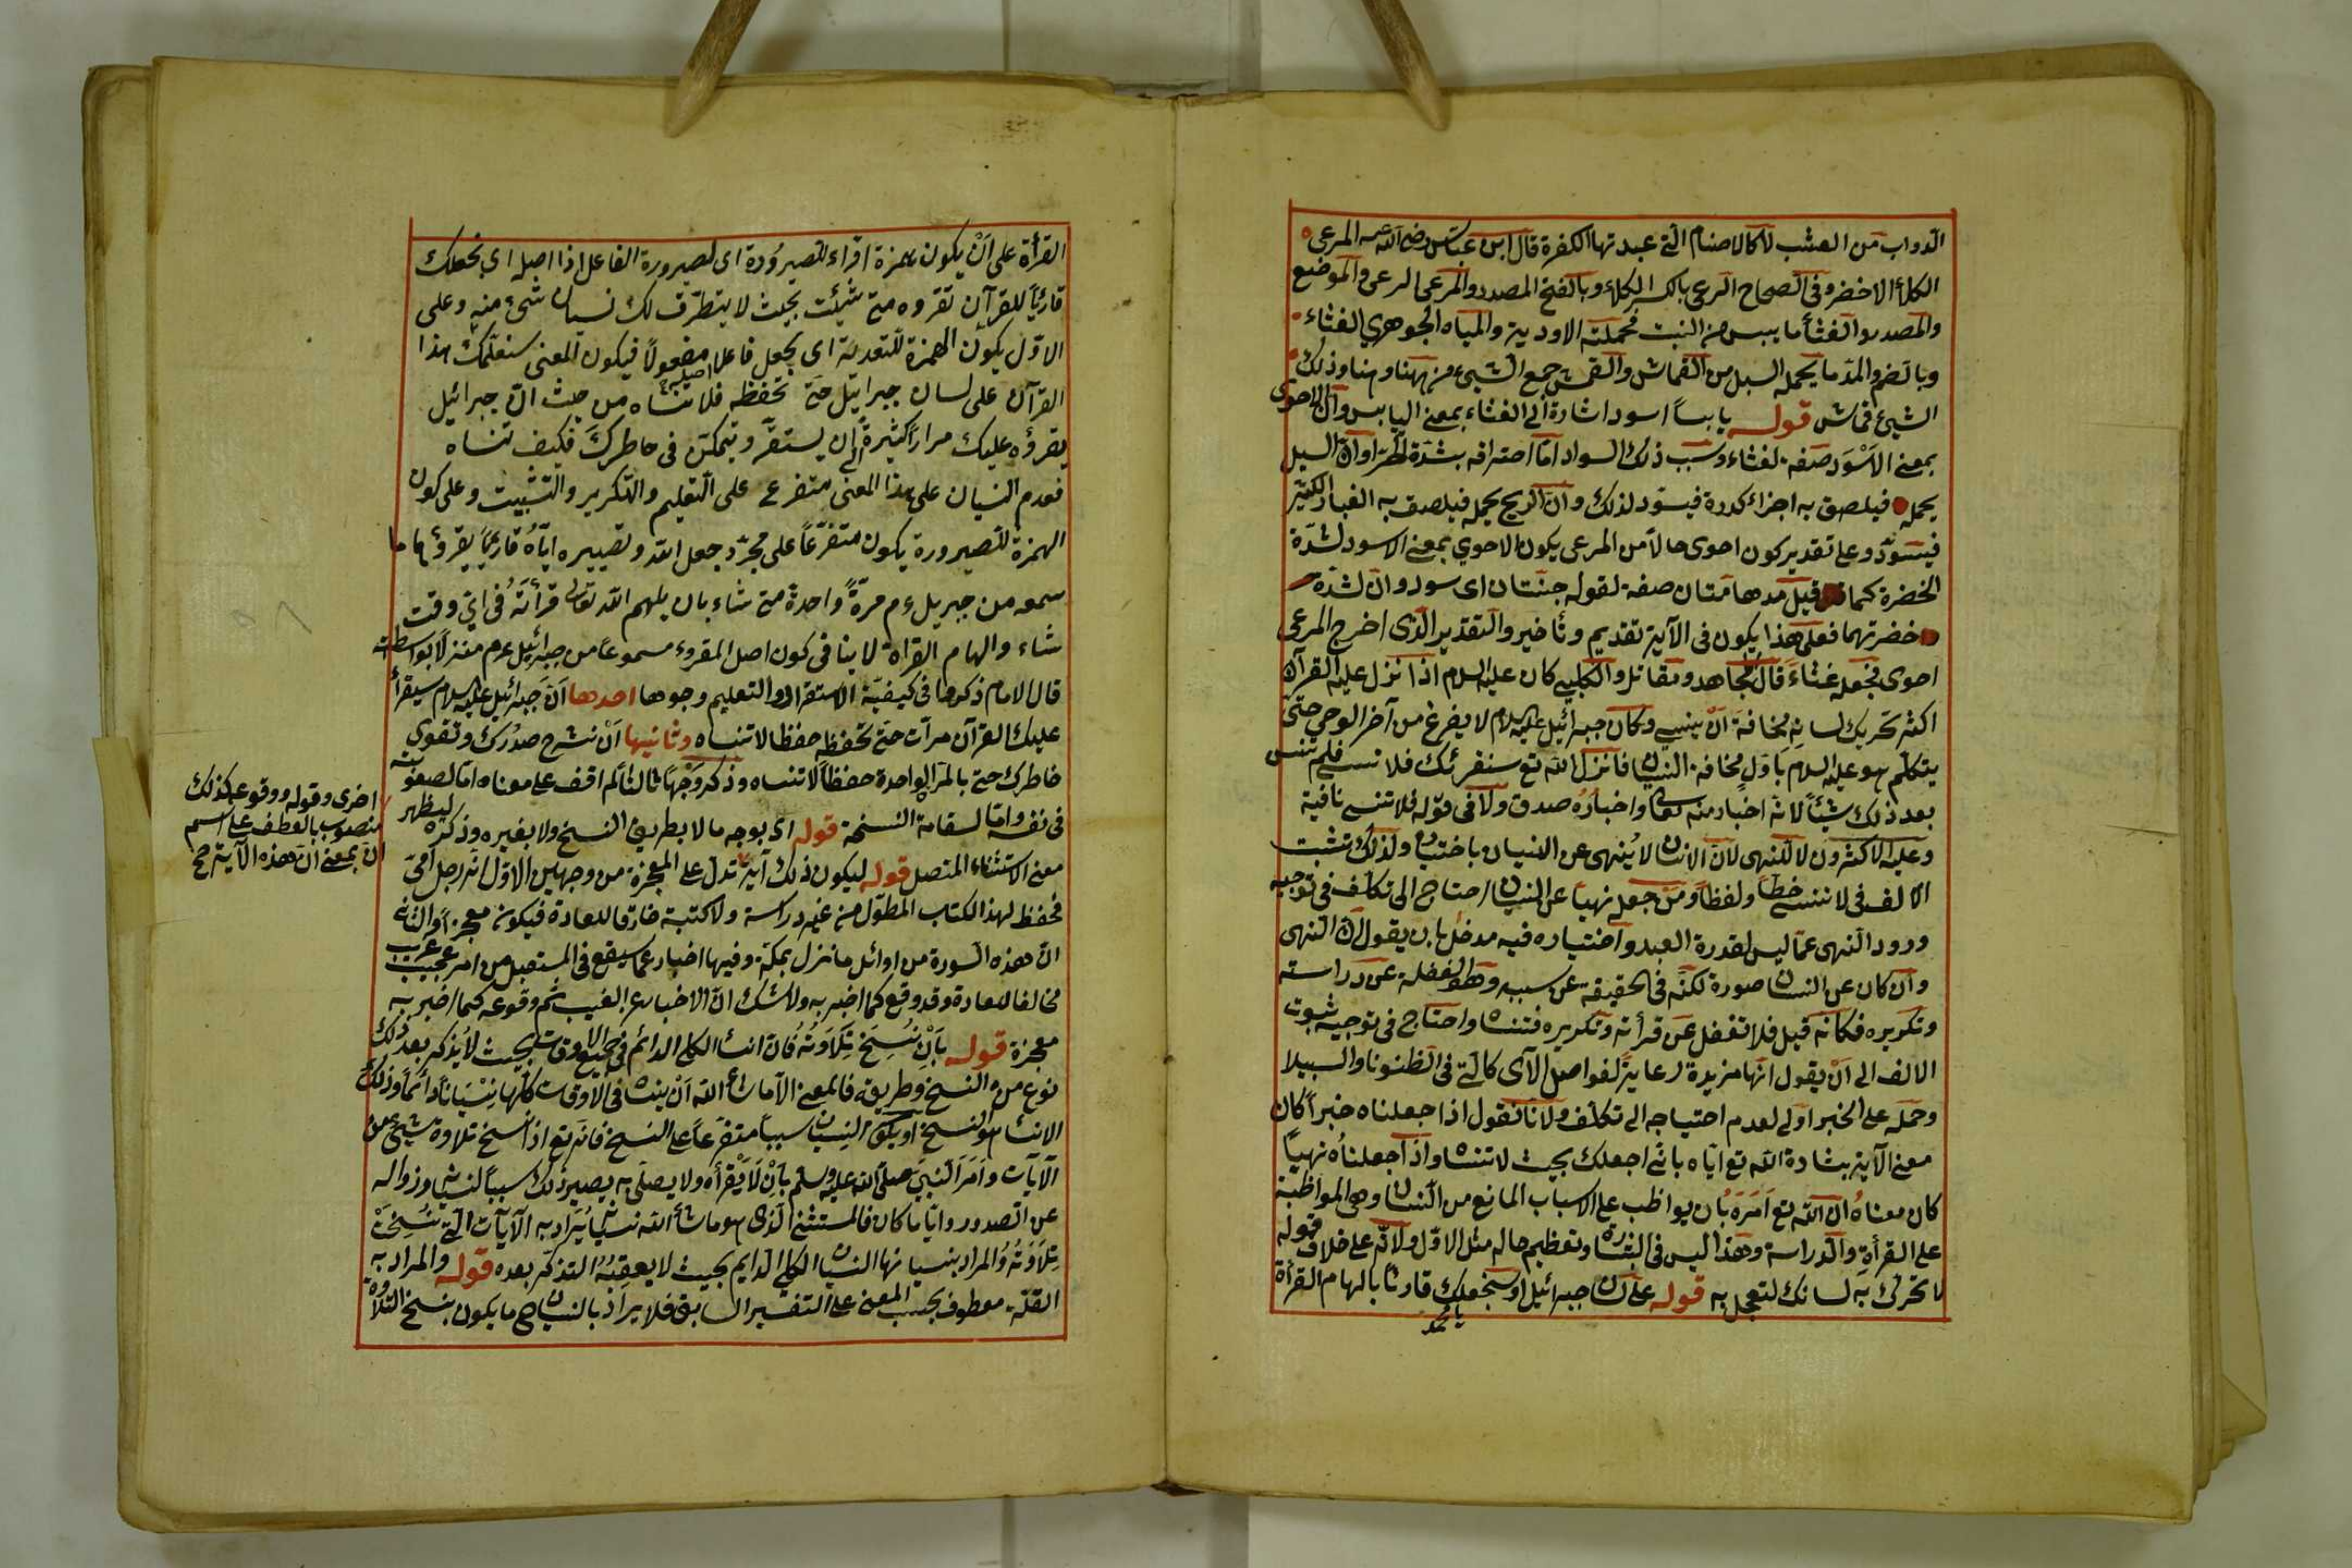 الدواب من العشب لا كالاصنام التى عبدتها الكفرة قال ابن عباس رضى الله عنه المرعى
الكلأ الاخضر وفى الصحاح الرعى بالكسر الكلاء وبالفتح المصدر والمرعى الرعى والموضع
والمصدر والغثأ ما يبس من النبت فحملته الاودية والمياه الجوهري الغثاء
وبالضم والمد ما يحمله السيل من القماش والقمش جمع الشيء من ههنا وهنا وذلك
الشيئ قماش قوله يابساً اسود اشارة الى الغثاء بمعنى اليابس وان الاحوى
بمعنى الاسود صفة لغثاء وسبب ذلك السواد اما احتراقه بشدة الحر او ان السيل
يحمله فيلصق به اجزاء كدرة فيسود لذلك وان الريح يحمله فيلصق به الغبار الكثير
فيسود وعلى تقدير كون احوى حالا من المرعى يكون الاحوي بمعنى الاسود لشدة
الخضرة كما قيل مدهامتان صفة لقوله جنتان اى سود وان لشدة
خضرتهما فعلى هذا يكون فى الآية تقديم وتأخير والتقدير الذى اخرج المرعى
احوى فجعله غثاءً قال مجاهد ومقاتل والكلبي كان عليه السلام اذا نزل عليه القرآن
اكثر تحريك لسانه مخافة ان ينسى وكان جبرائيل عليه السلام لا يفرغ من آخر الوحي حتى
يتكلم هو عليه السلام باوله مخافة النسيان فانزل الله تع سنقرئك فلا تنسى فلم تنس
بعد ذلك شيئاً لانه اخبار منه تعالى واخباره صدق ولا فى قوله فلا تنسى نافية
وعليه الاكثرون لا للنهى لان الانسان لا ينهى عن النسيان باختياره ولذلك تثبت
الالف فى لا تنسى خطاً ولفظاً ومن جعله نهيا عن النسيان احتاج الى تكلف فى توجيه
ورود النهى عما ليس لقدرة العبد واختياره فيه مدخل بان يقول ان النهى
وان كان عن النسيان صورة لكنه فى الحقيقة عن سببه وهو الغفلة عن دراسته
وتكريره فكانه قيل فلا تغفل عن قرأته وتكريره فتنساه واحتاج فى توجيه ثبوت
الالف الى ان يقول انها مزيدة رعاية لفواصل الآى كالتى فى الظنونا والسبيلا
وحمله على الخبر اولى لعدم احتياجه الى تكلف ولانا نقول اذا جعلناه خبراً كان
معنى الآية بشارة الله تع اياه بانى اجعلك بحيث لا تنساه واذا جعلناه نهياً
كان معناه ان الله تع امره بان يواظب على الاسباب المانع من النسيان وهى المواظبة
على القرأة والدراسة وهذا ليس فى البشارة وتعظيم حاله مثل الاول ولانه على خلاف قوله
لا تحرك به لسانك لتعجل به قوله على لسان جبرائيل او سنجعلك قارئا بالهام القرأة
يا محمد
القرأة على ان يكون همزة اقراء للصيرورة اى لصيرورة الفاعل اذا اصله اى نجعلك
قارئاً للقرآن تقروه متى شيئت بحيث لا يتطرق لك نسيان شئ منه وعلى
الاول يكون الهمزة للتعدية اى يجعل فاعل اصله مفعولاً فيكون المعنى سنعلمك هذا
القرآن على لسان جبرائيل حتى تحفظه فلا تنساه من حيث ان جبرائيل
يقرؤه عليك مراراً كثيرة الى ان يستقر ويتمكن فى خاطرك فكيف تنساه
فعدم النسيان على هذا المعنى متفرع على التعليم والتكرير والتثبيت وعلى كون
الهمزة للصيرورة يكون متفرعاً على مجرد جعل الله وتصييره اياه قارئاً يقرؤها ما
سمعه من جبريل ءم مرةً واحدة متى شاء بان يلهم الله تعالى قرأته فى اي وقت
شاء والهام القراة لا ينافى كون اصل المقروء مسموعاً من جبرائيل ءم منزلا بواسطته
قال الامام ذكروا فى كيفية الاستقراء والتعليم وجوها احدها ان جبرائيل عليه السلام سيقرأ
عليك القرآن مرات حتى تحفظه حفظا لا تنساه وثانيها ان نشرح صدرك ونقوى
خاطرك حتى بالمرة الواحدة حفظاً لا تنساه وذكر وجهاً ثالثا لم اقف على معناه اما لصعوبته
فى نفسه واما لسقامة النسخة قوله اى بوجه ما لا بطريق النسخ ولا بغيره وذكره ليظهر
معنى الاستثناء المتصل قوله ليكون ذلك آية تدل على المعجزة من وجهين الاول انه رجل امى
فحفظ لهذا الكتاب المطول من غير دراسة ولا كتبة خارقا للعادة فيكون معجزاً والثانى
ان هذه السورة من اوائل ما نزل بمكة وفيها اخبار عما سيقع فى المستقبل من امر عجيب غريب
مخالفا للعادة وقد وقع كما اخبر به ولا شك ان الاخبار عن الغيب ثم وقوعه كما اخبر به
معجزة قوله بان نسخ تلاوته فان انساء الكلى الدائم فى جميع الاوقات بحيث لا يذكر بعد ذلك
نوع من النسخ وطريقه فالمعنى الا ما شاء الله ان ينساه فى الاوقات كلها نسياناً دائماً وذلك
الانساء هو النسخ او يكون النسيان سبباً متفرعاً على النسخ فانه تع اذا نسخ تلاوة شيئ من
الآيات وامر النبى صلى الله عليه وسلم بان لا يقرأه ولا يصلى به يصير ذلك سبباً لنسيانه وزواله
عن الصدور واياً ما كان فالمستثنى الذى هو ما شاء الله نسيانه يراد به الآيات التى نسخت
تلاوته والمراد بنسيانها النسيان الكلى الدايم بحيث لا يعقبه التذكر بعده قوله والمراد به
القلة معطوف بحسب المعنى على التفسير السابق فلا يراد بالنسيان ح ما يكون بنسخ التلاوة
اخرى وقوله ووقوعه كذلك
منصوب بالعطف على اسم
ان بمعنى ان هذه الآية صح